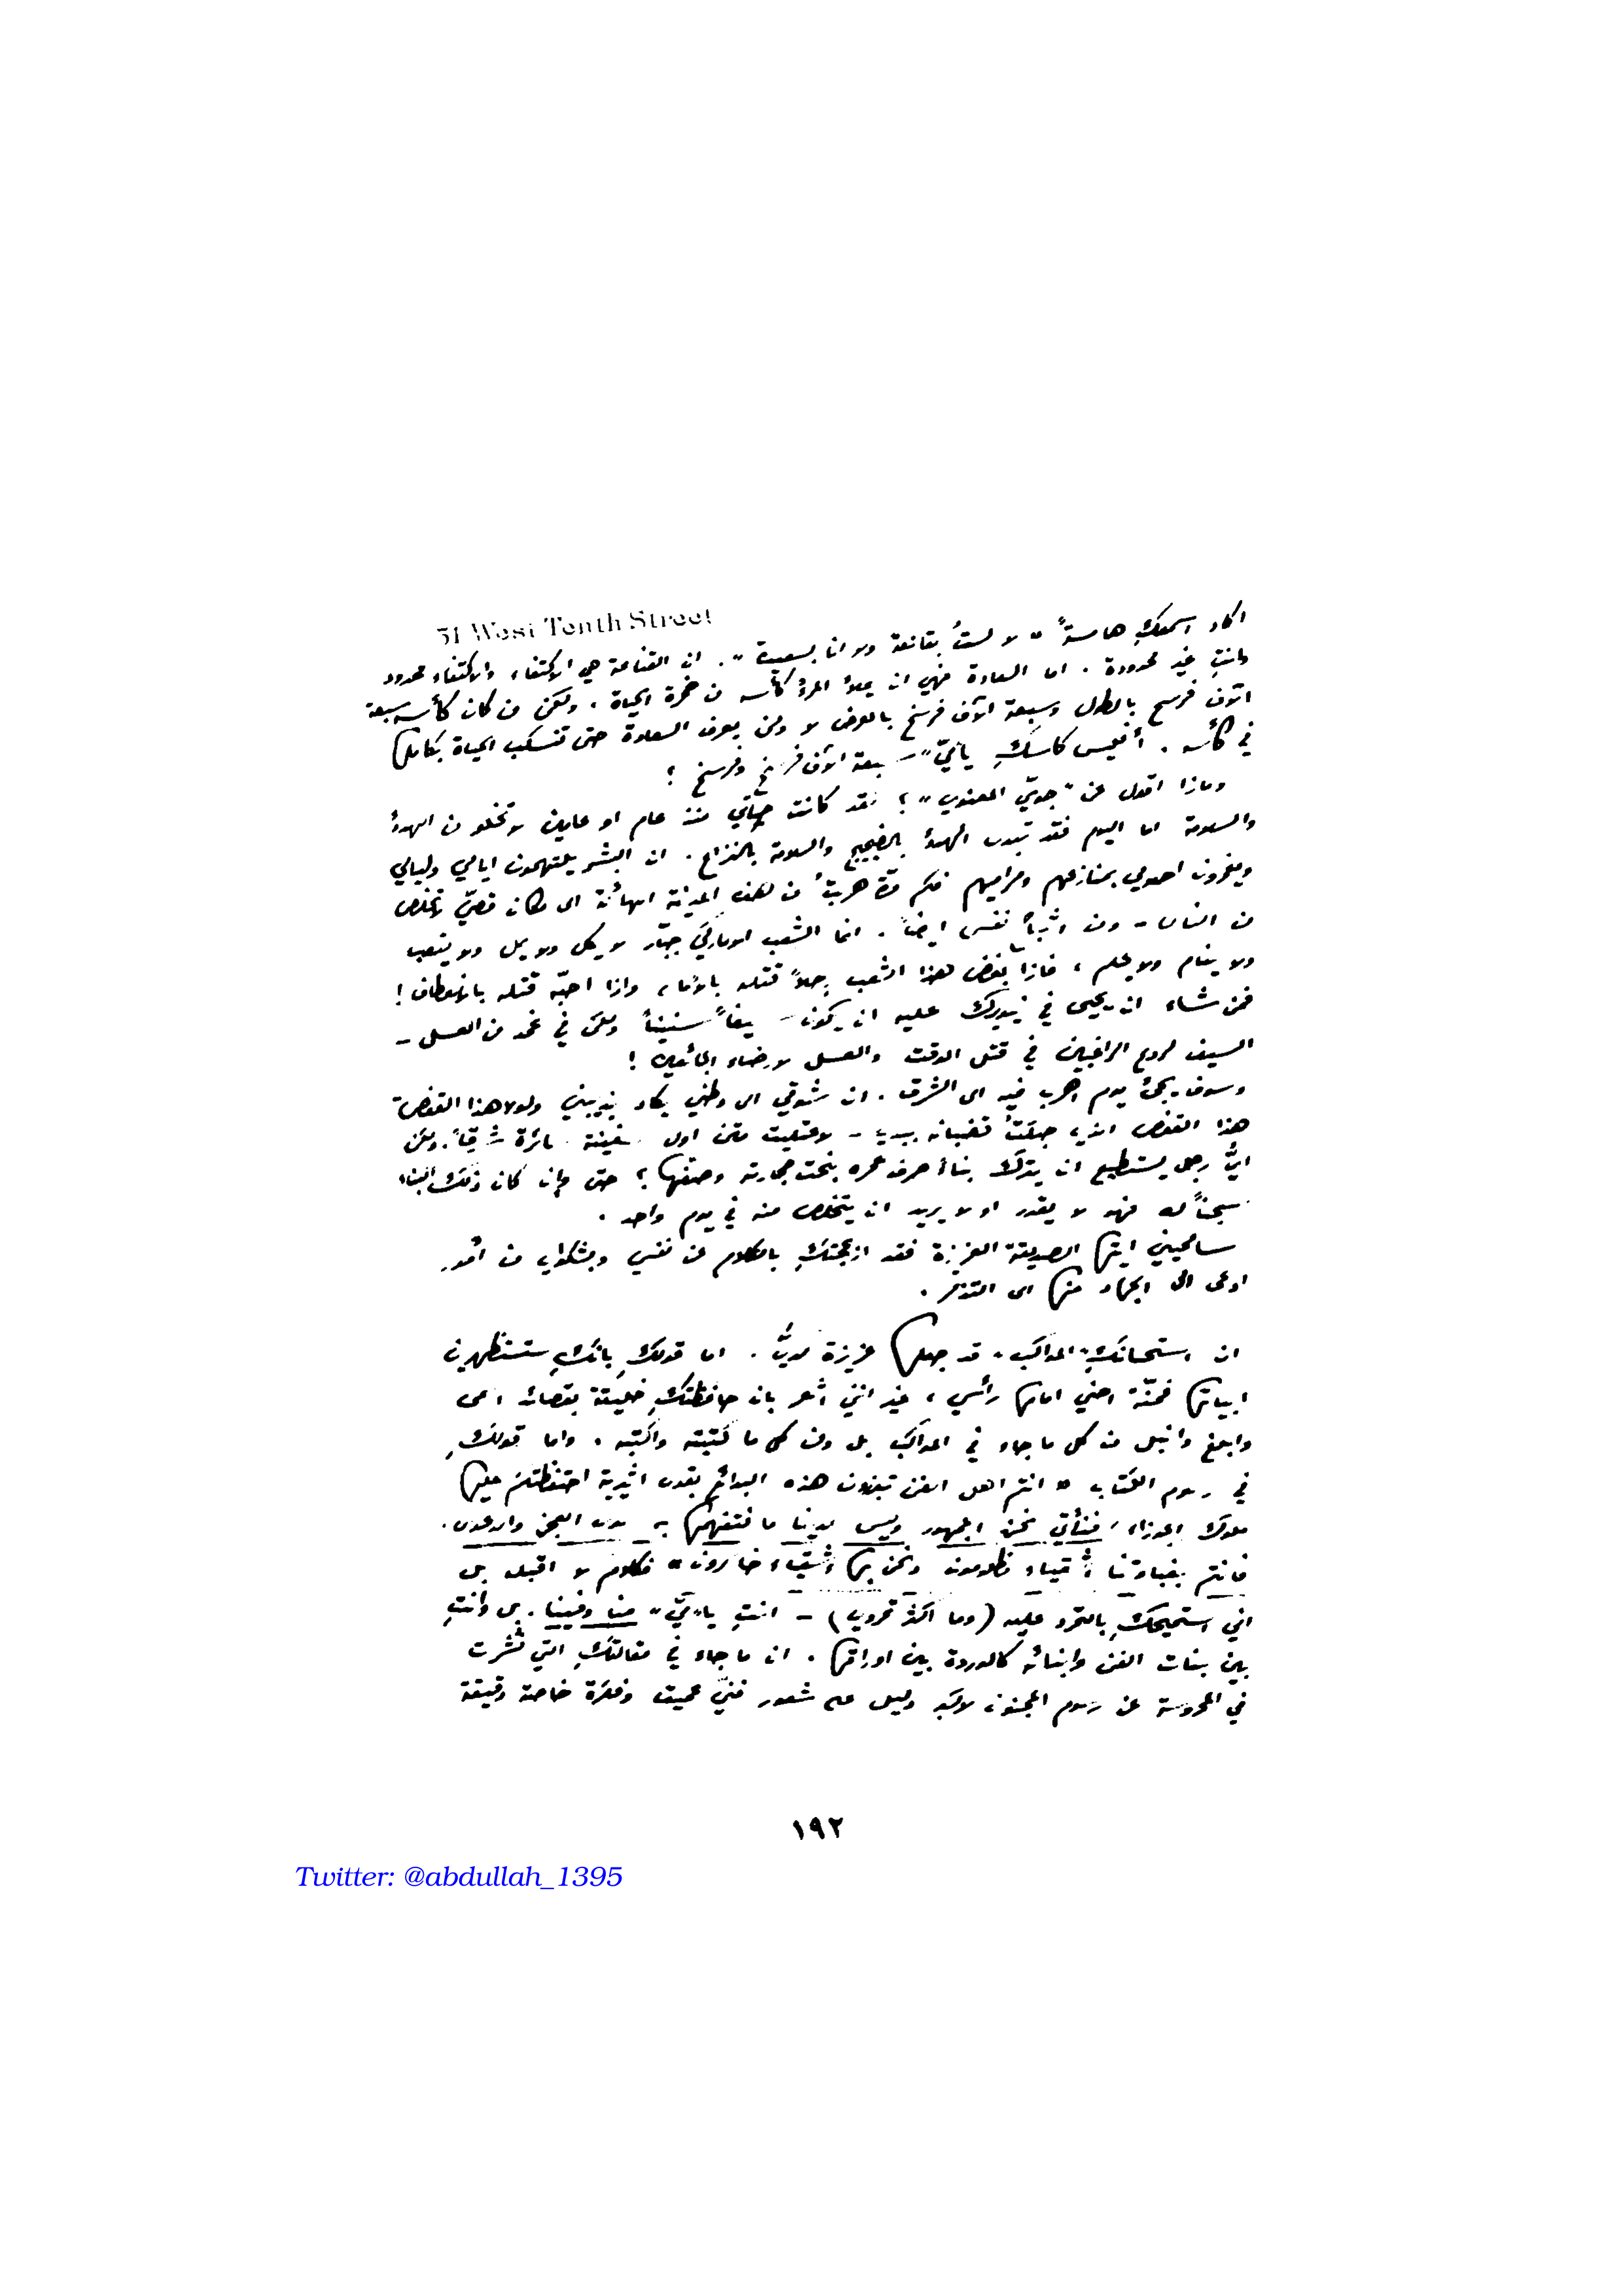 51 West Tenth Street
اكاد اسمعكِ هامسةً " لا لستُ بقانعة ولا انا بسعيدة ". ان القناعة هي الاكتفاء والاكتفاء محدود
وانتِ غير محدودة . اما السعادة فهي ان يملأ المرءُ كأسه من خمرة الحياة . ولكن من كان كأسه سبعة
آلاف فرسخ بالطول وسبعة آلاف فرسخ بالعرض لا ولن يعرف السعادة حتى تنسكب الحياة بكاملها
في كأسه . أفليس كاسكِ يا ميّ سبعة آلاف فرسخ وفرسخ ؟
وماذا اقول عن " جوّي المعنوي " ؟ لقد كانت حياتي منذ عام او عامين لا تخلو من الهدوء
والسلامة اما اليوم فقد تبدل الهدوء بالضجيج والسلامة بالنزاع . ان البشر يلتهمون ايامي وليالي
ويغمرون احلامي بمنازعهم ومراميهم فكم مرّة هربتُ من هذه المدينة الهائلة الى مكان قصيّ لاتخلص
من الناس - ومن اشباح نفسي ايضاً . انما الشعب الاميركي جبّار لا يكل ولا يمل ولا يتعب
ولا ينام ولا يحلم ، فاذا بغض هذا الشعب رجلاً قتله بالاهمال واذا احبّه قتله بالانعطاف !
فمن شاء ان يحيى في نيويورك عليه ان يكون سيفاً سنيناً ولكن في غمد من العسل -
السيف لردع الراغبين في قتل الوقت والعسل لارضاء الجائعين !
وسوف يجيءُ يوم اهرب فيه الى الشرق . ان شوقي الى وطني يكاد يذيبني ولولا هذا القفص -
هذا القفص الذي حبكتُ قضبانه بيدي - لاعتليت متن اول سفينة سائرة شرقاً . ولكن
ايُّ رجل يستطيع ان يترك بناءً صرف عمره بنحت حجارته وصفّها ؟ حتى وان كان ذلك البناء
سجناً له فهو لا يقدر او لا يريد ان يتخلص منه في يوم واحد .
سامحيني ايتها الصديقة العزيزة فقد ازعجتكِ بالكلام عن نفسي وبشكواي من أمور
ادعى الى الجهاد منها الى التذمر .
ان استحسانكِ " المواكب " قد جعلها عزيزة لديَّ . اما قولكِ بانكِ ستستظهرين
ابياتها فمنّة احني امامها رأسي ، غير انني أشعر بان حافظتكِ خليقة بقصائد اسمى
وابلغ وانبل من كل ما جاء في المواكب بل ومن كل ما كتبته واكتبه . واما قولكِ
في رسوم الكتاب " انتم اهل الفن تبرزون هذه البدائع بقوى اثيرية احتفظتكم عليها
ملوك الجوزاء ، فنأتي نحن الجمهور وليس لدينا ما نتفهمها به سوى العجز والدعوى .
فانتم بغباوتنا اشقياء مظلومون ونحن بها اشقياء خاسرون " فكلام لا اقبله بل
اني استميحكِ بالتمرد عليه (وما اكثر تمردي) - انتِ يا " ميّ " منا وفينا . بل وانتِ
بين بنات الفن وابنائه كالوردة بين اوراقها . ان ما جاء في مقالتكِ التي نُشرت
في المحروسة عن رسوم المجنون لاكبر دليل على شعور فنيّ عميق وفكرة خاصة دقيقة
١٩٢
Twitter: @abdullah_1395